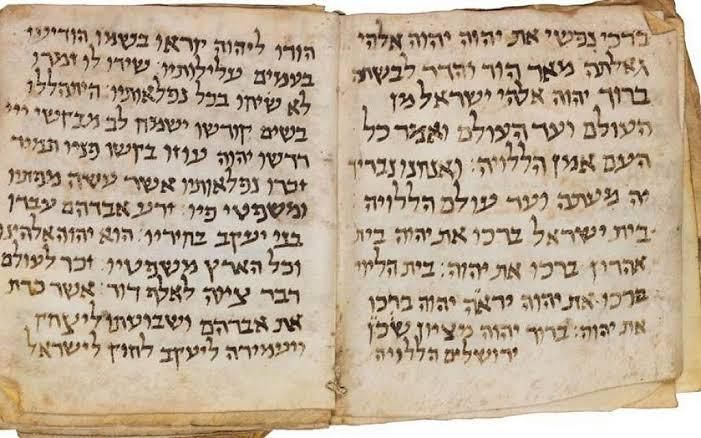 ברכי נפשי את יהוה יהוה אלהי
גאלתה מאד הוד והדר לבשתה
ברוך יהוה אלהי ישראל מן
העולם ועד העולם ואמר כל
העם אמן הללויה: ואנחנו נבריך
יה מעתה ועד עולם הללויה
בית ישראל ברכו את יהוה בית
אהרין ברכו את יהוה: בית הליוי
ברכו את יהוה יראי יהוה ברכו
את יהוה: ברוך יהוה מציון שכן
ירושלים הללויה
הודו ליהוה קראו בשמו הודיעו
בעמים עלילותיו: שירו לו זמרו
לא שיחו בכל נפלאותיו: היתהללו
בשים קודשו ישמח לב מבקשי ייי
דרשו יהוה עוזו בקשו פניו תמיד
זכרו נפלאותיו אשר עשה מפתיו
ומשפטי פיו: זרע אברהם עבדו
בני יעקב בחיריו: הוא יהוה אלהינו
וכל הארץ משפטיו: זכר לעולם
דבר ציוה לאלף דור: אשר כרת
את אברהם ושבועתו ליצחק
ויעמידה ליעקב לחוק לישראל